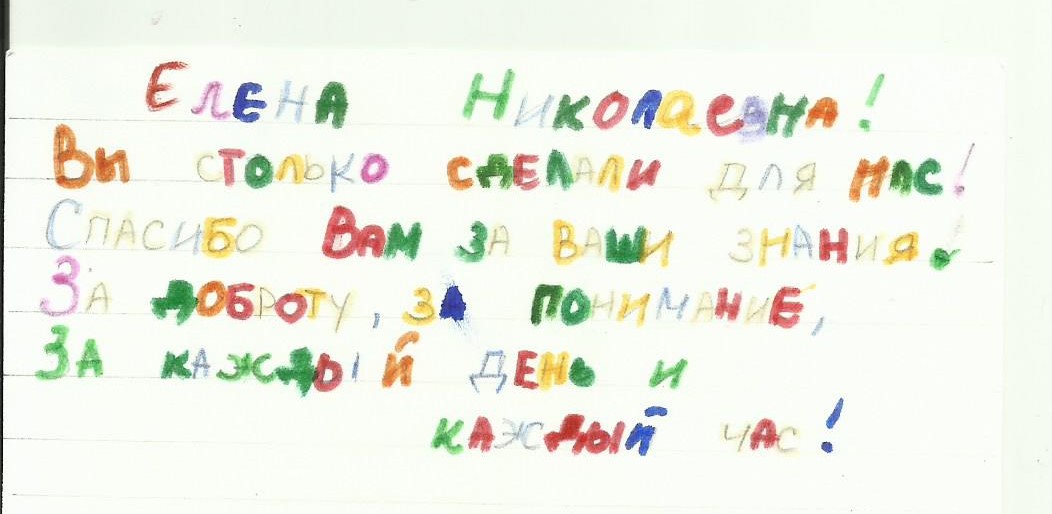 Елена Николаевна!
Вы столько сделали для нас!
Спасибо Вам за ваши знания!
За доброту, за понимание,
За каждый день и
каждый час!